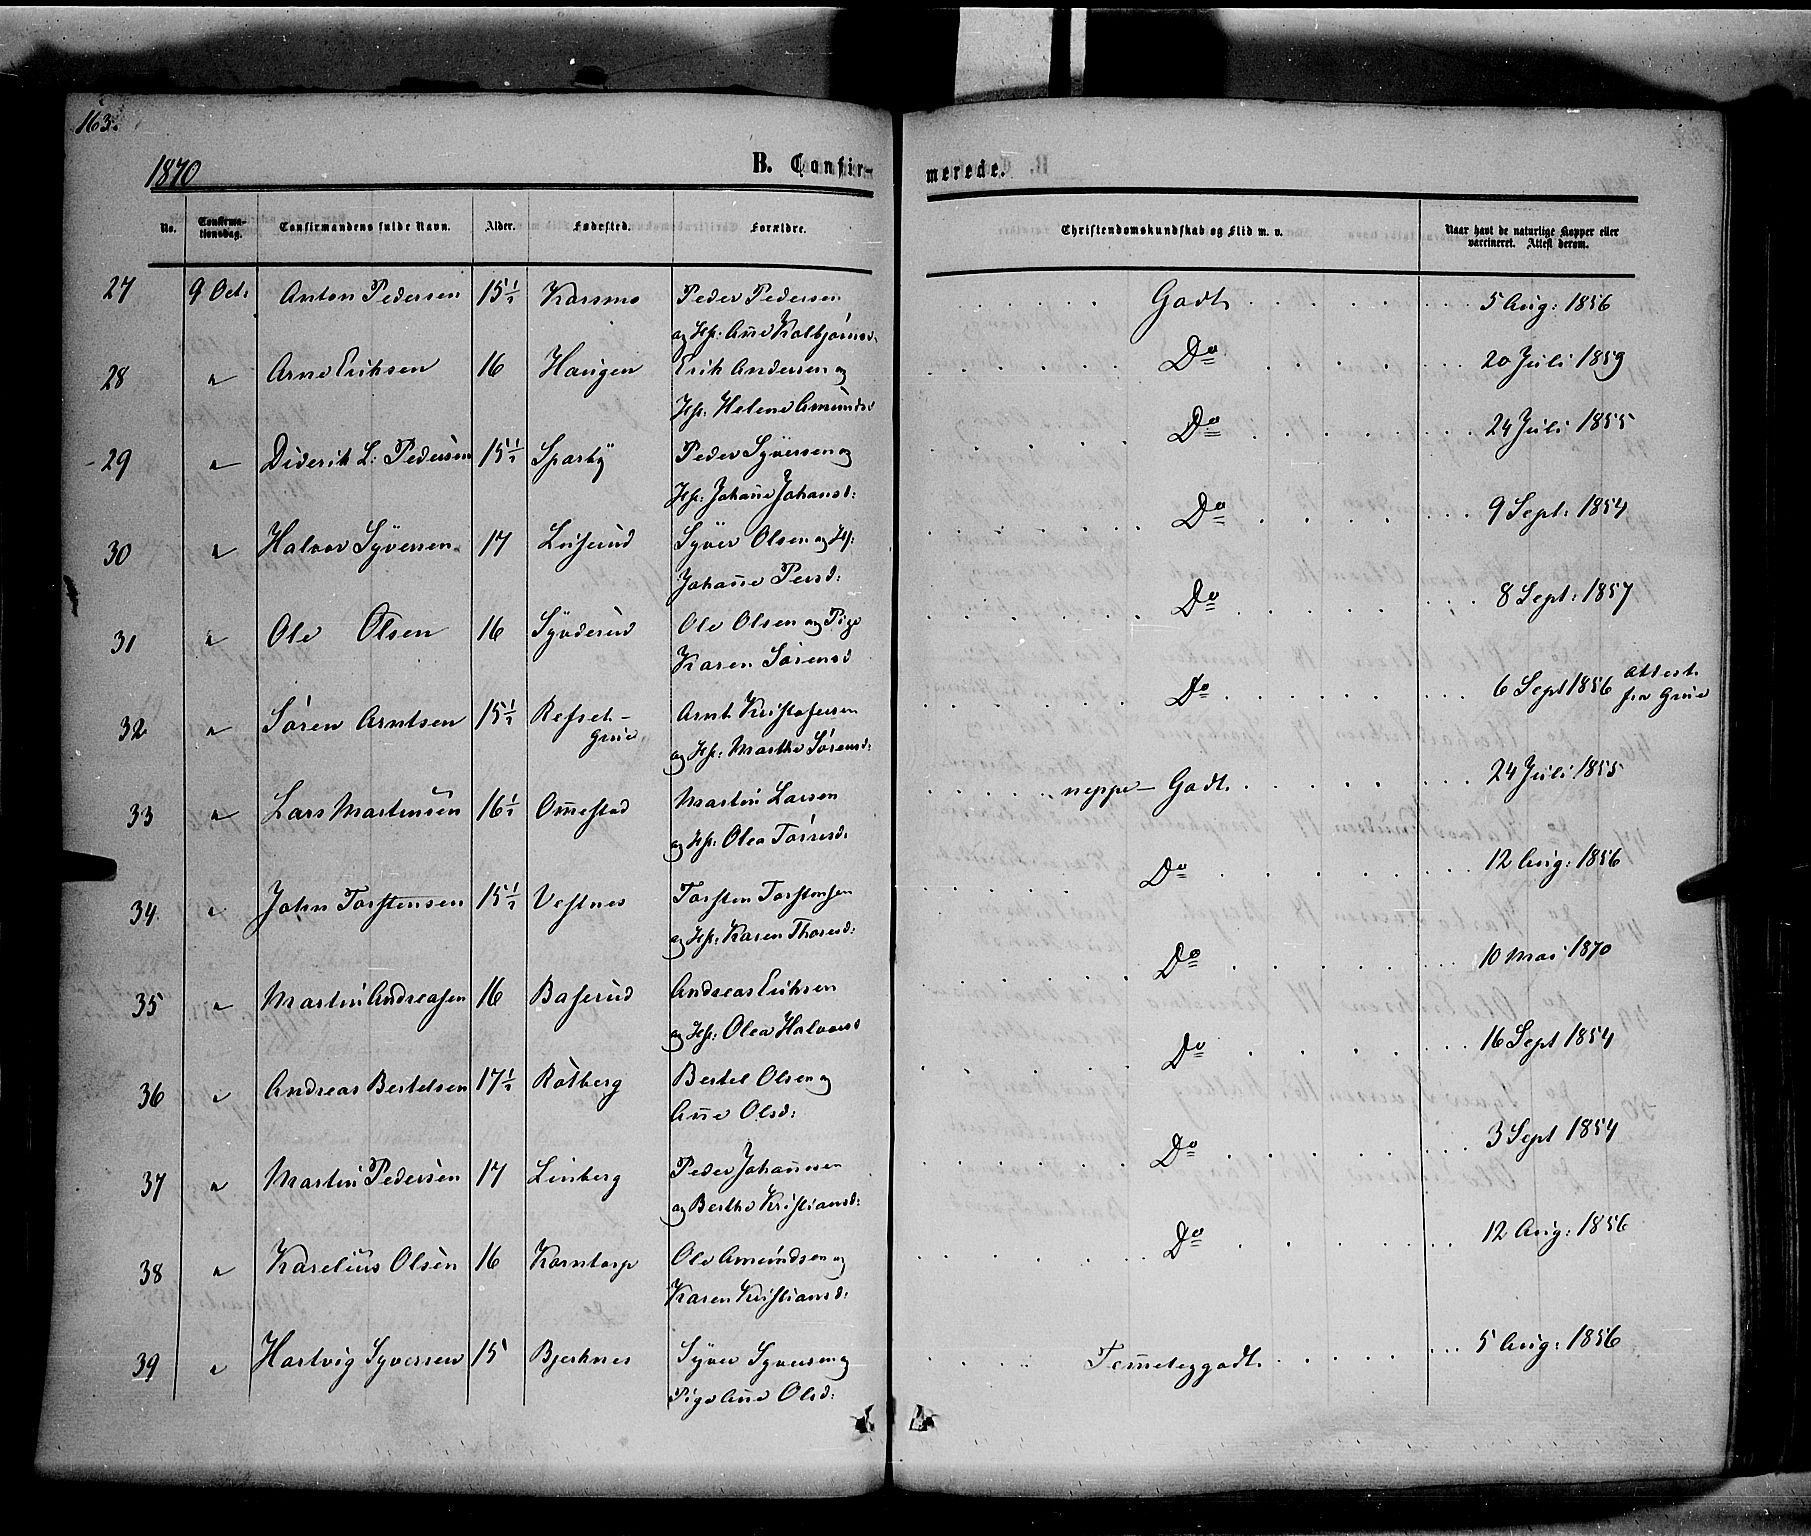 163.
1870
B. Confir-
merede.
No.
Confirma-
tionsdag.
Confirmandens fulde Navn.
Alder.
Fødested.
Forældre.
Christendomskundskab og Flid m. v.
Naar havt de naturlige Kopper eller
vaccineret. Attest derom.
27 9 Oct: Anton Pedersen 15½ Korsmo Peder Pedersen Godt 5 Aug: 1856
og H: Aņe Kolbjørnsd
28 " Arne Eriksen 16 Haugen Erik Andersen og Do 20 Juli 1859
H: Helene Amundsd
29 " Diderik L: Pedersen 15½ Sparby Peder Syversen og Do 24 Juli 1855
H: Johaņe Johansd:
30 " Halvor Syversen 17 Syver Olsen og H: Do 9 Sept: 1854
Johaņe Persd:
31 " Ole Olsen 16 Ole Olsen og Pige Do 8 Sept: 1857
Karen Sørensd
32 " Søren Arntsen 15½ Refset- Arnt Kristofersen Do 6 Sept 1856 Attest
Grue og H: Marthe Sørensd: fra Grue
33 " Lars Martinsen 16½ Om̄estad Martin Larsen neppe Godt 24 Juli 1855
og H: Olea
34 " John Torstensen 15½ Vestnes Torsten Torstensen Do 12 Aug: 1856
og H: Karen Thoresd:
35 " Martin Andreasen 16 Baserud Andreas Eriksen Do 10 Mai 1870
og H: Olea Halvorsd
36 " Andreas Bertelsen 17½ Rotberg Bertel Olsen og Do 16 Sept 1854
Aņe Olsd:
37 " Martin Pedersen 17 Linberg Peder Johannesen Do 3 Sept 1854
og Berthe Kristiansd:
38 " Karelius Olsen 16 Korntorp Ole Amundsen og Do 12 Aug: 1856
Karen Kristiansd:
39 " Hartvig Syversen 15 Bjerknes Syver Syversen og Tem̄elig godt 5 Aug: 1856
Pige Aņe Olsd: